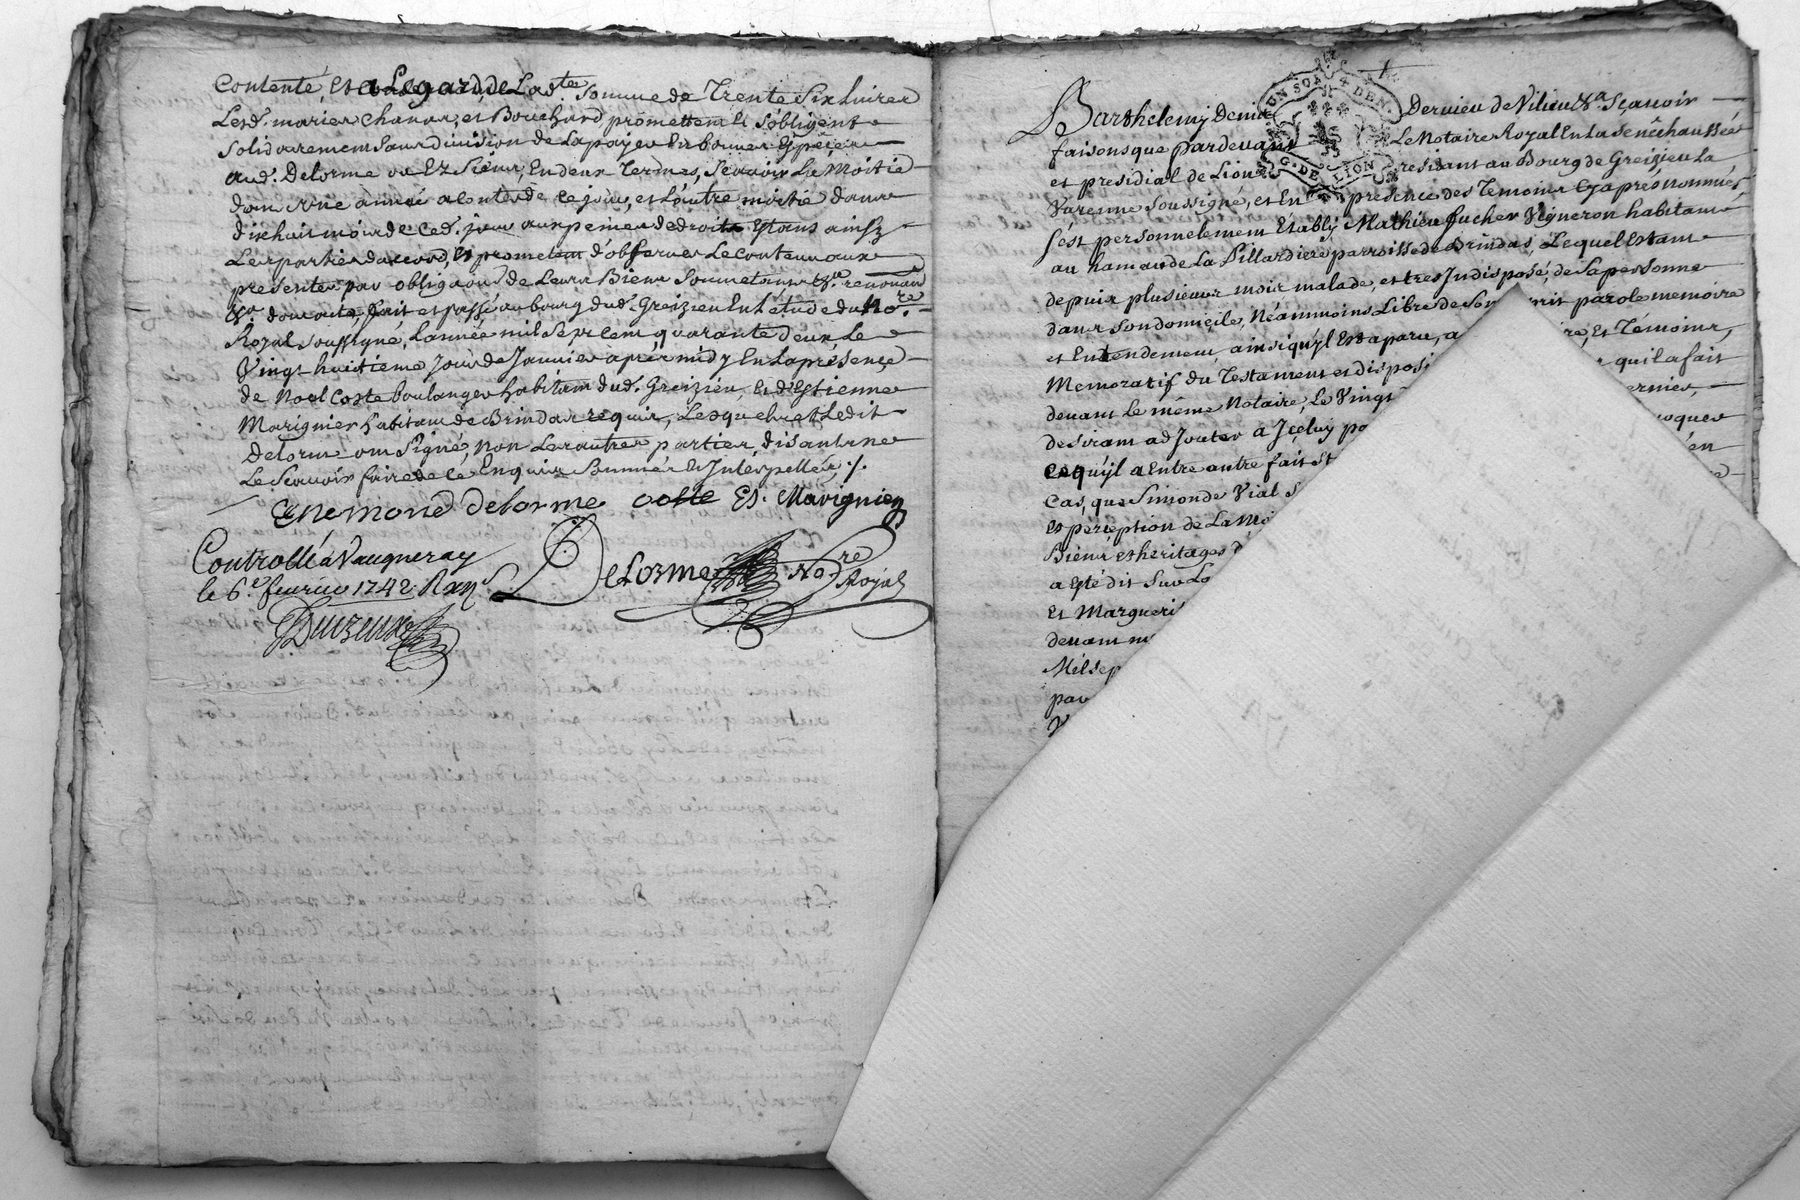 Contenté, et a Legard de Lad.te Somme de Trente Six Livres
Lesd. mariez Chanar, et Bouchard promettent et S'obligent
Solidairement Sans division de La payer En bonnes Espèces
aud. Delorme ou Ez Siens, En deux Termes, Scavoir La Moitié
dans une année a Conter de ce jour, et L'autre moitié dans
dixhuit mois de Ced. jour aux peines de droit Estans ainsy
Les parties daccord, Et promettent d'observer Le Contenu aux
presentes par obligaon de Leurs Biens Soumetans &.a renonant
&.a dont acte, fait et passé au bourg dud. Greizieu En L'étude du No.re
Royal Soussigné, L'année mil Sept Cent quarante deux Le
Vingt huitieme Jour de Janvier après midy En La présence
de Noel Coste boulanger habitant dud. Greizieu, Et d'Estienne
Marignier habitant de Brindas requis, Lesquels et Ledit
Delorme ont Signé, Non Les autres parties, disant ne
Le Scavoir faire de ce Enquis Sommés Et Interpellés ./.
Enemond Delorme coste Es. Marignier
Controllé à Vaugneray
le 6.e fevrier 1742
DeLorme No.re Royal
Barthelemy Denis Dervieu de Vilieu &.a Sçavoir
faisons que pardevant Le Notaire Royal En La Senêchaussée
et presidial de Lion residant au Bourg de Greizieu La
Varenne Soussigné, et En presence des Temoins Cy après nommés
s'est personnelement Êtably Mathieu Jucher Vigneron habitant
au hameau de La Pillardiere parroisse de Brindas, Lequel Estant
depuis plusieurs mois malade, et tres Indisposé, de Sa personne
dans Son domicile, Néanmoins Libres de Son parole memoire
et Entendement ainsi qu'yl Est aparu, a Et Témoins,
Memoratif du Testament et disposi qu'il a fait
devant Le même Notaire, Le Vingt ernier,
desirant adjouter à Jceluy po voques
ce qu'yl a Entre autre fait St en
Cas, que Simonde Vial S
Et perception de La Moi
Biens et heritages d
a Esté dit Sur Lo
Et Margueri
devant m
Mil Sep
par